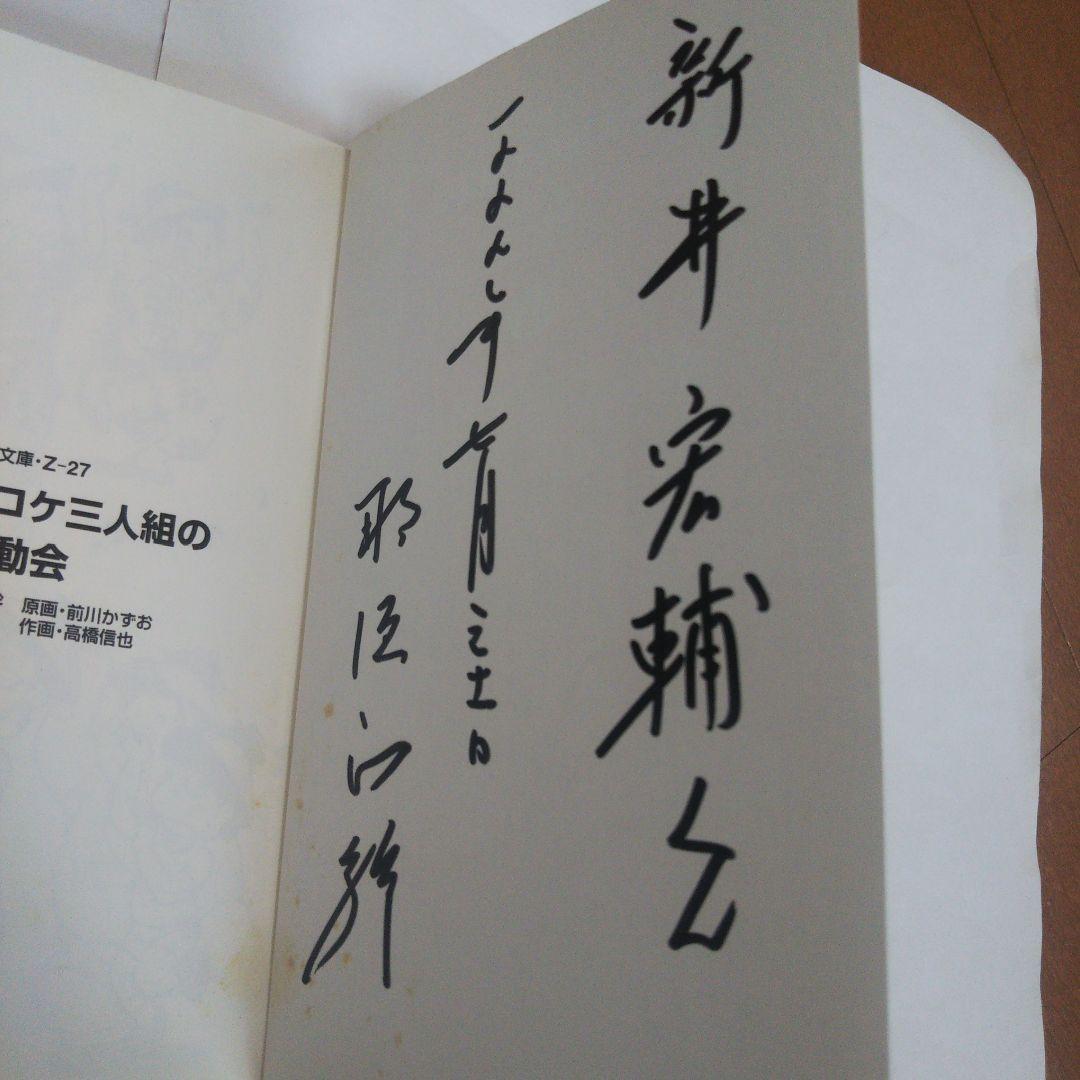 新井宏輔くん
年七月 日
那須正幹
文庫・Z-27
コケ三人組の
動会
原画・前川かずお
作画・高橋信也